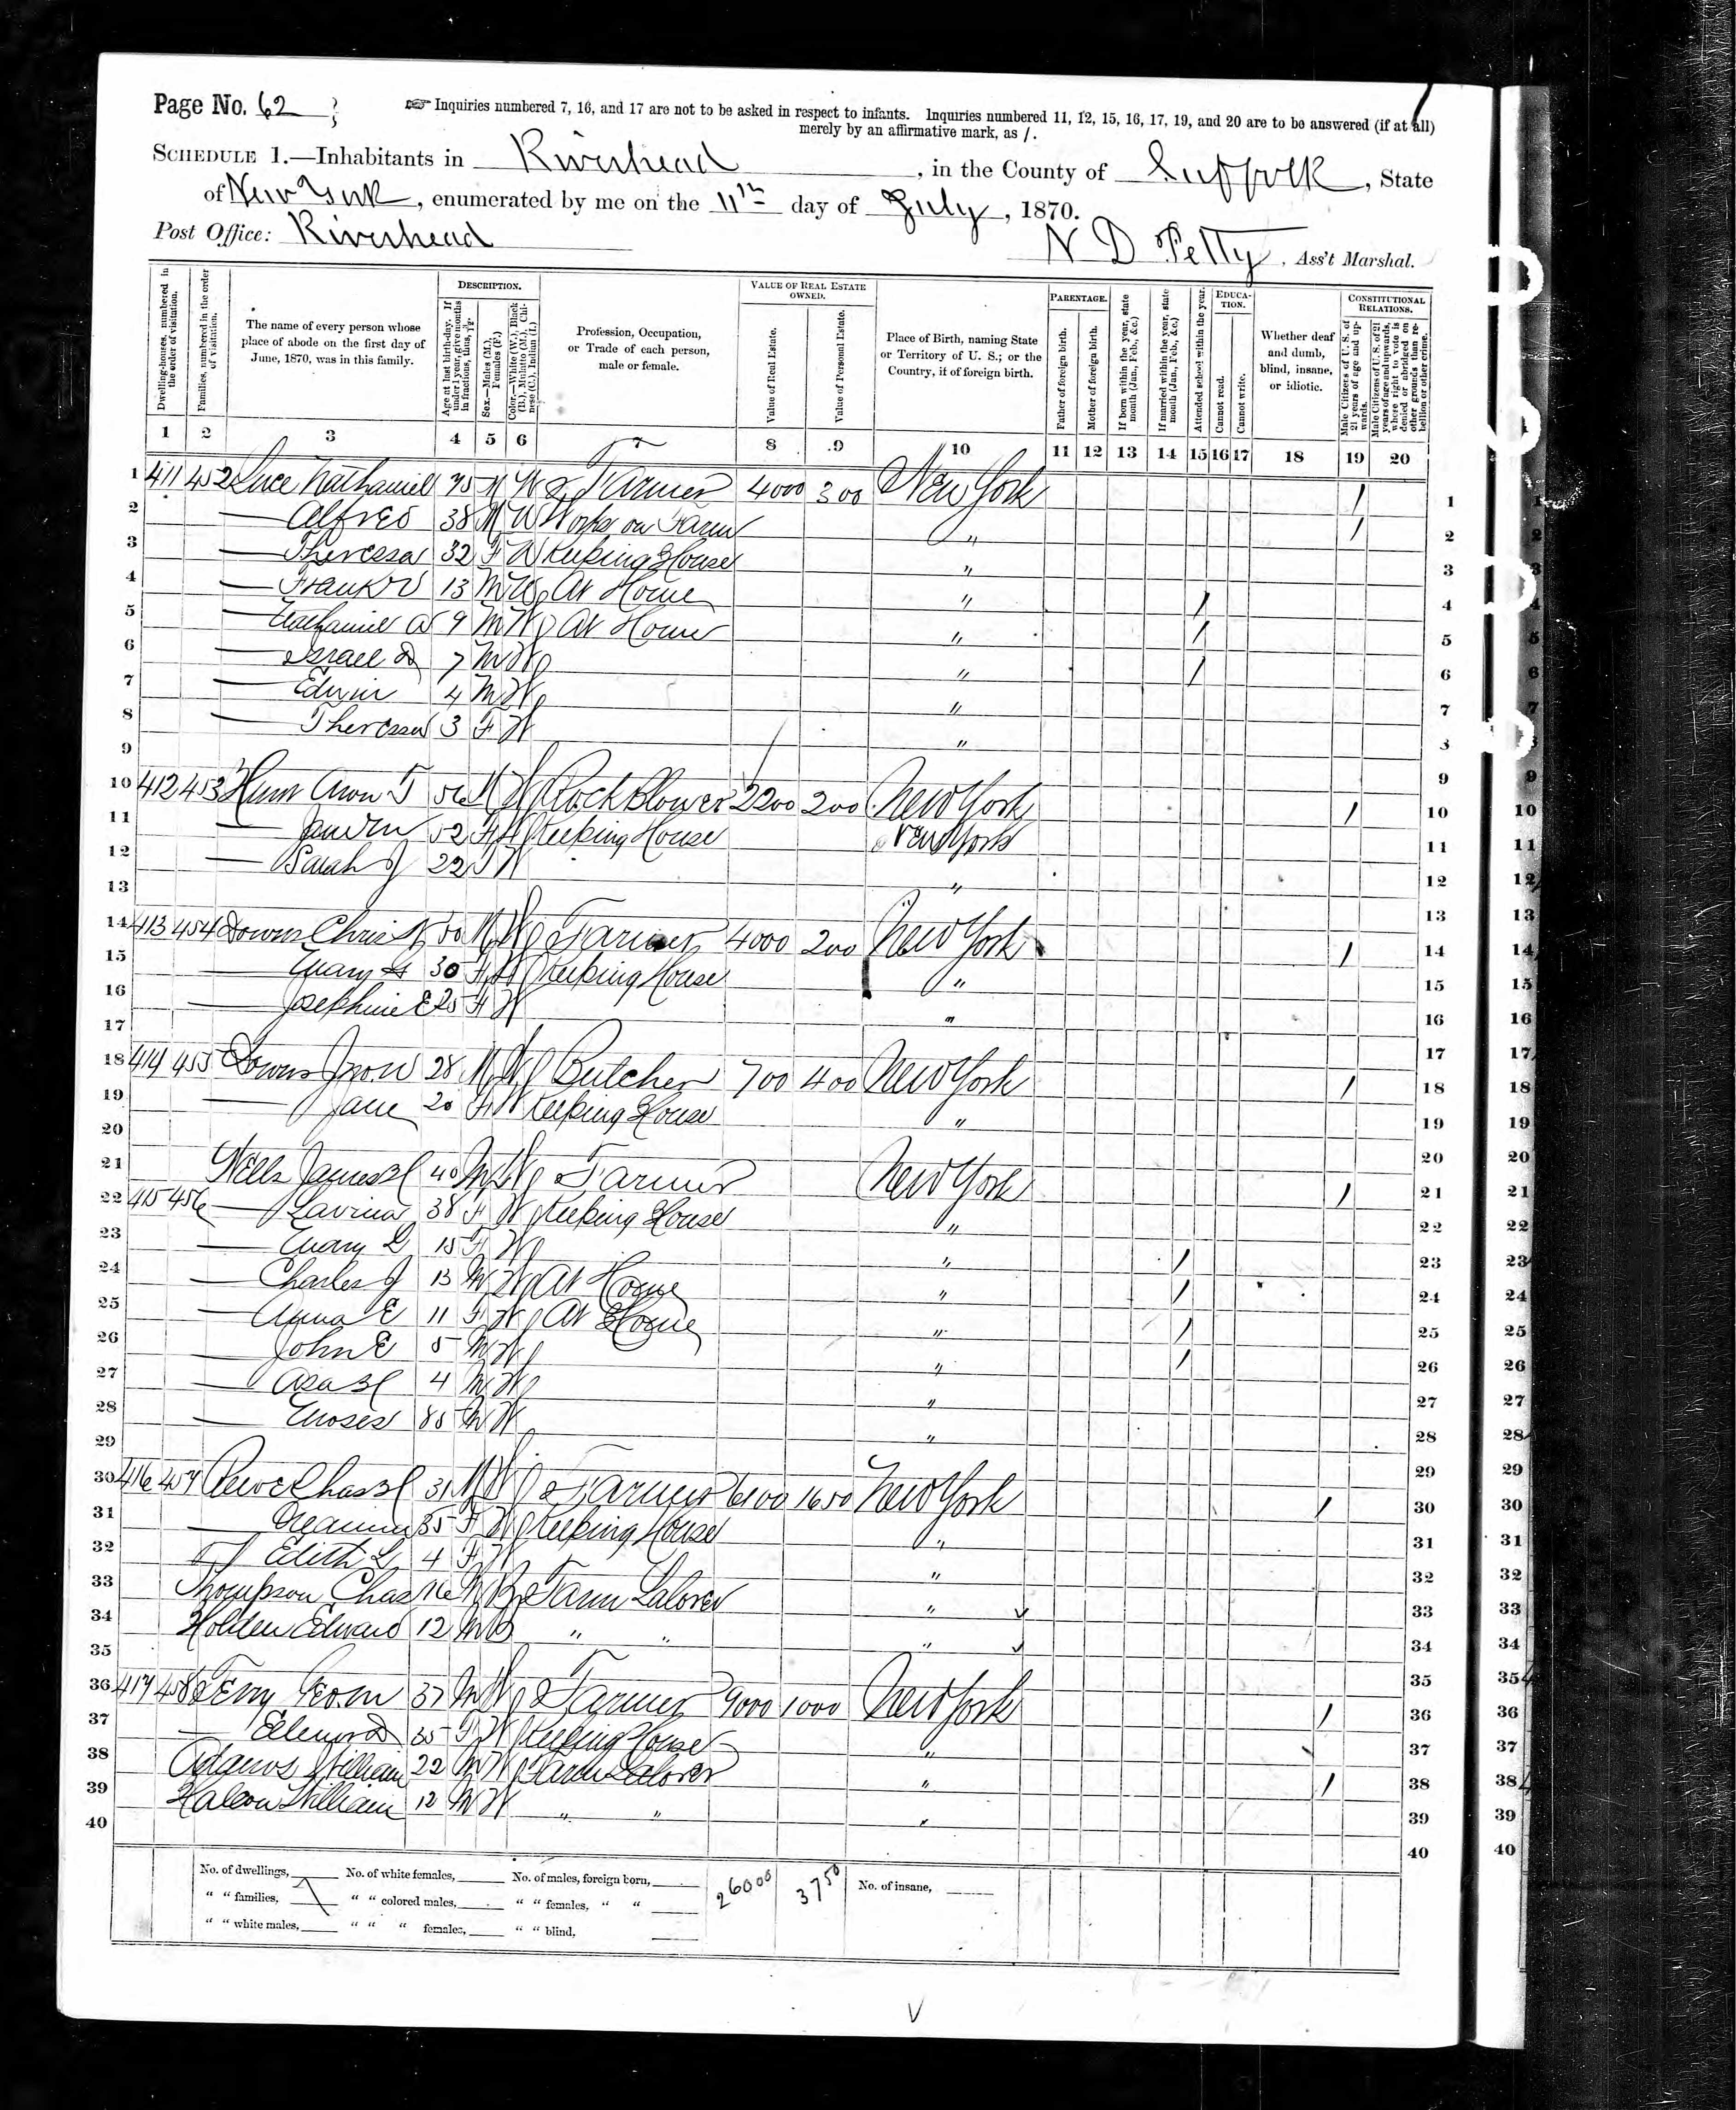 Page No. 62
☞ Inquiries numbered 7, 16, and 17 are not to be asked in respect to infants. Inquiries numbered 11, 12, 15, 16, 17, 19, and 20 are to be answered (if at all)
merely by an affirmative mark, as /.
SCHEDULE 1.—Inhabitants in Riverhead, in the County of Suffolk, State
of New York, enumerated by me on the 11th day of July, 1870.
Post Office: Riverhead
N D Petty, Ass't Marshal.
Dwelling-houses, numbered in the order of visitation.
Families, numbered in the order of visitation.
The name of every person whose place of abode on the first day of June, 1870, was in this family.
DESCRIPTION.
Age at last birth-day. If under 1 year, give months in fractions, thus, 3/12.
Sex.—Males (M.), Females (F.)
Color.—White (W.), Black (B.), Mulatto (M.), Chinese (C.), Indian (I.)
Profession, Occupation, or Trade of each person, male or female.
VALUE OF REAL ESTATE OWNED.
Value of Real Estate.
Value of Personal Estate.
Place of Birth, naming State or Territory of U. S.; or the Country, if of foreign birth.
PARENTAGE.
Father of foreign birth.
Mother of foreign birth.
If born within the year, state month (Jan., Feb., &c.)
If married within the year, state month (Jan., Feb., &c.)
Attended school within the year.
EDUCATION.
Cannot read.
Cannot write.
Whether deaf and dumb, blind, insane, or idiotic.
CONSTITUTIONAL RELATIONS.
Male Citizens of U. S. of 21 years of age and upwards.
Male Citizens of U. S. of 21 years of age and upwards, where right to vote is denied or abridged on other grounds than rebellion or other crime.
1 2 3 4 5 6 7 8 9 10 11 12 13 14 15 16 17 18 19 20
1 411 452 Luce Nathaniel 75 M W Farmer 4000 300 New York / 1
2 — Alfred 38 M W Works on Farm " / 2
3 — Theressa 32 F W Keeping House " 3
4 — Frank 13 M W At Home " / 4
5 — Nathaniel 9 M W At Home " / 5
6 — Israel 7 M W " / 6
7 — Edwin 4 M W " 7
8 — Theressa 3 F W " 8
9 9
10 412 453 56 M W 2200 200 New York / 10
11 — 52 F W Keeping House New York 11
12 — Sarah J 22 F W " 12
13 13
14 413 454 Downs Chris 50 M W Farmer 4000 200 New York / 14
15 — Mary 30 F W Keeping House " 15
16 — Josephine E 25 F W " 16
17 17
18 414 455 Downs 28 M W Butcher 700 400 New York / 18
19 — Jane 20 F W Keeping House " 19
20 20
21 Wells James H 40 M W Farmer New York / 21
22 415 456 — Lavinia 38 F W Keeping House " 22
23 — Mary 15 F W " / 23
24 — Charles J 13 M W At Home " / 24
25 — Anna E 11 F W At Home " / 25
26 — John E 5 M W " / 26
27 — Asa H 4 M W " 27
28 — Moses 85 M W " 28
29 29
30 416 457 Chas H 31 M W Farmer 6100 1650 New York / 30
31 — 35 F W Keeping House " 31
32 — Edith L 4 F W " 32
33 Thompson Chas 16 M B Farm Laborer " 33
34 Holden Edward 12 M B " " " 34
35 35
36 417 458 Terry Geo 37 M W Farmer 9000 1000 New York / 36
37 — 35 F W Keeping House " 37
38 Adams William 22 M W Farm Laborer " / 38
39 William 12 M W " " " 39
40 40
No. of dwellings, No. of white females, No. of males, foreign born, 26000 3750 No. of insane,
" " families, " " colored males, " " females, " "
" " white males, " " " females, " " blind,